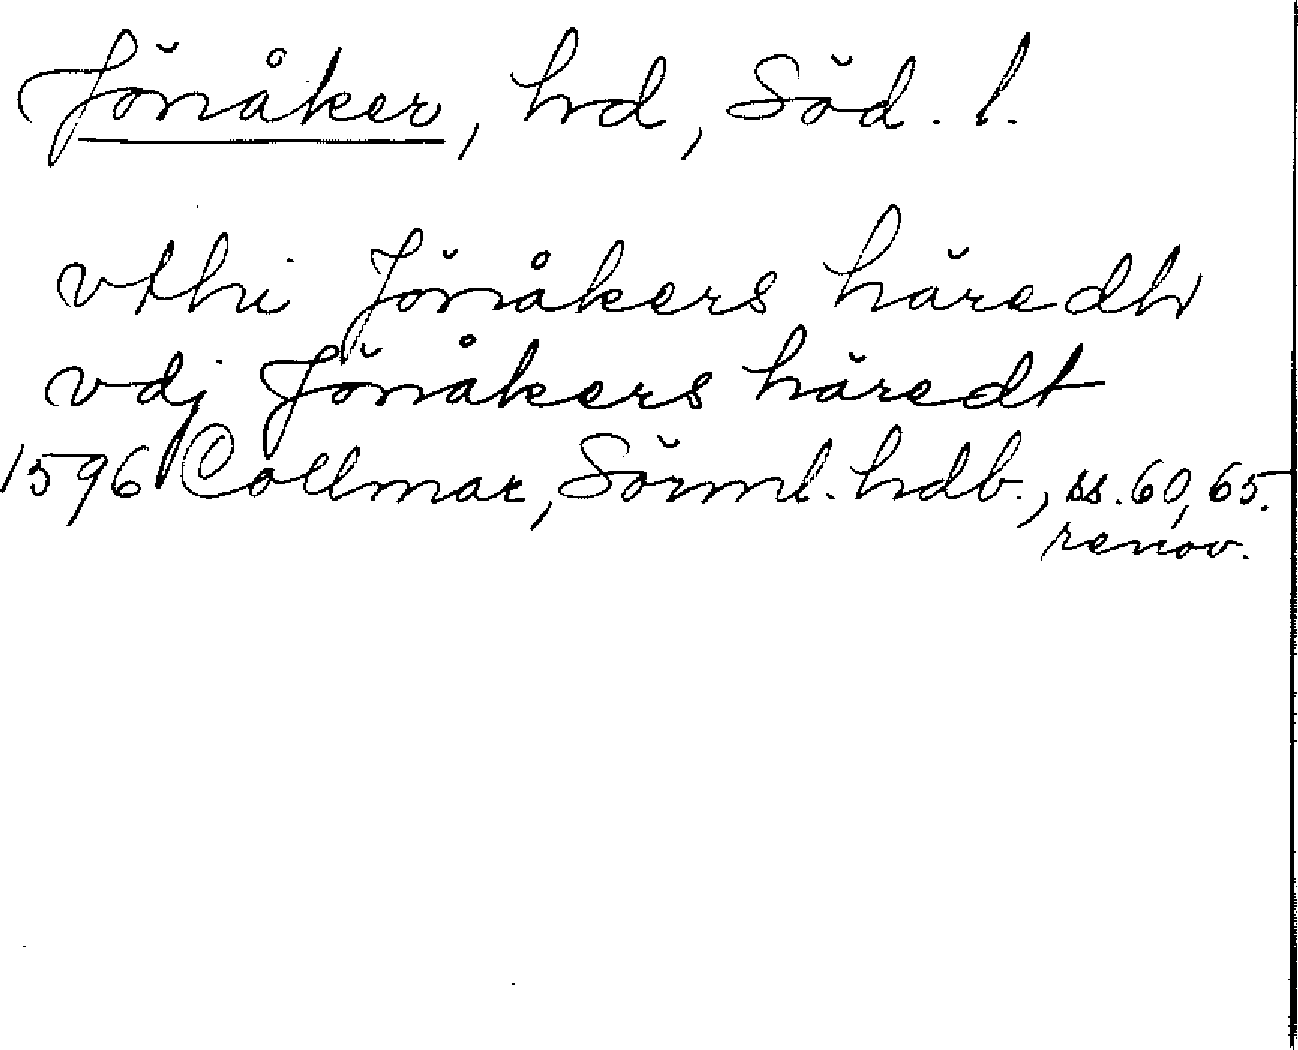 Jönåker, hrd, Söd. l.
vthi Jönåkers häredh
vdj Jönåkers häredt
1596 Collmar, Sörml. hdb., ss. 60, 65.
renov.